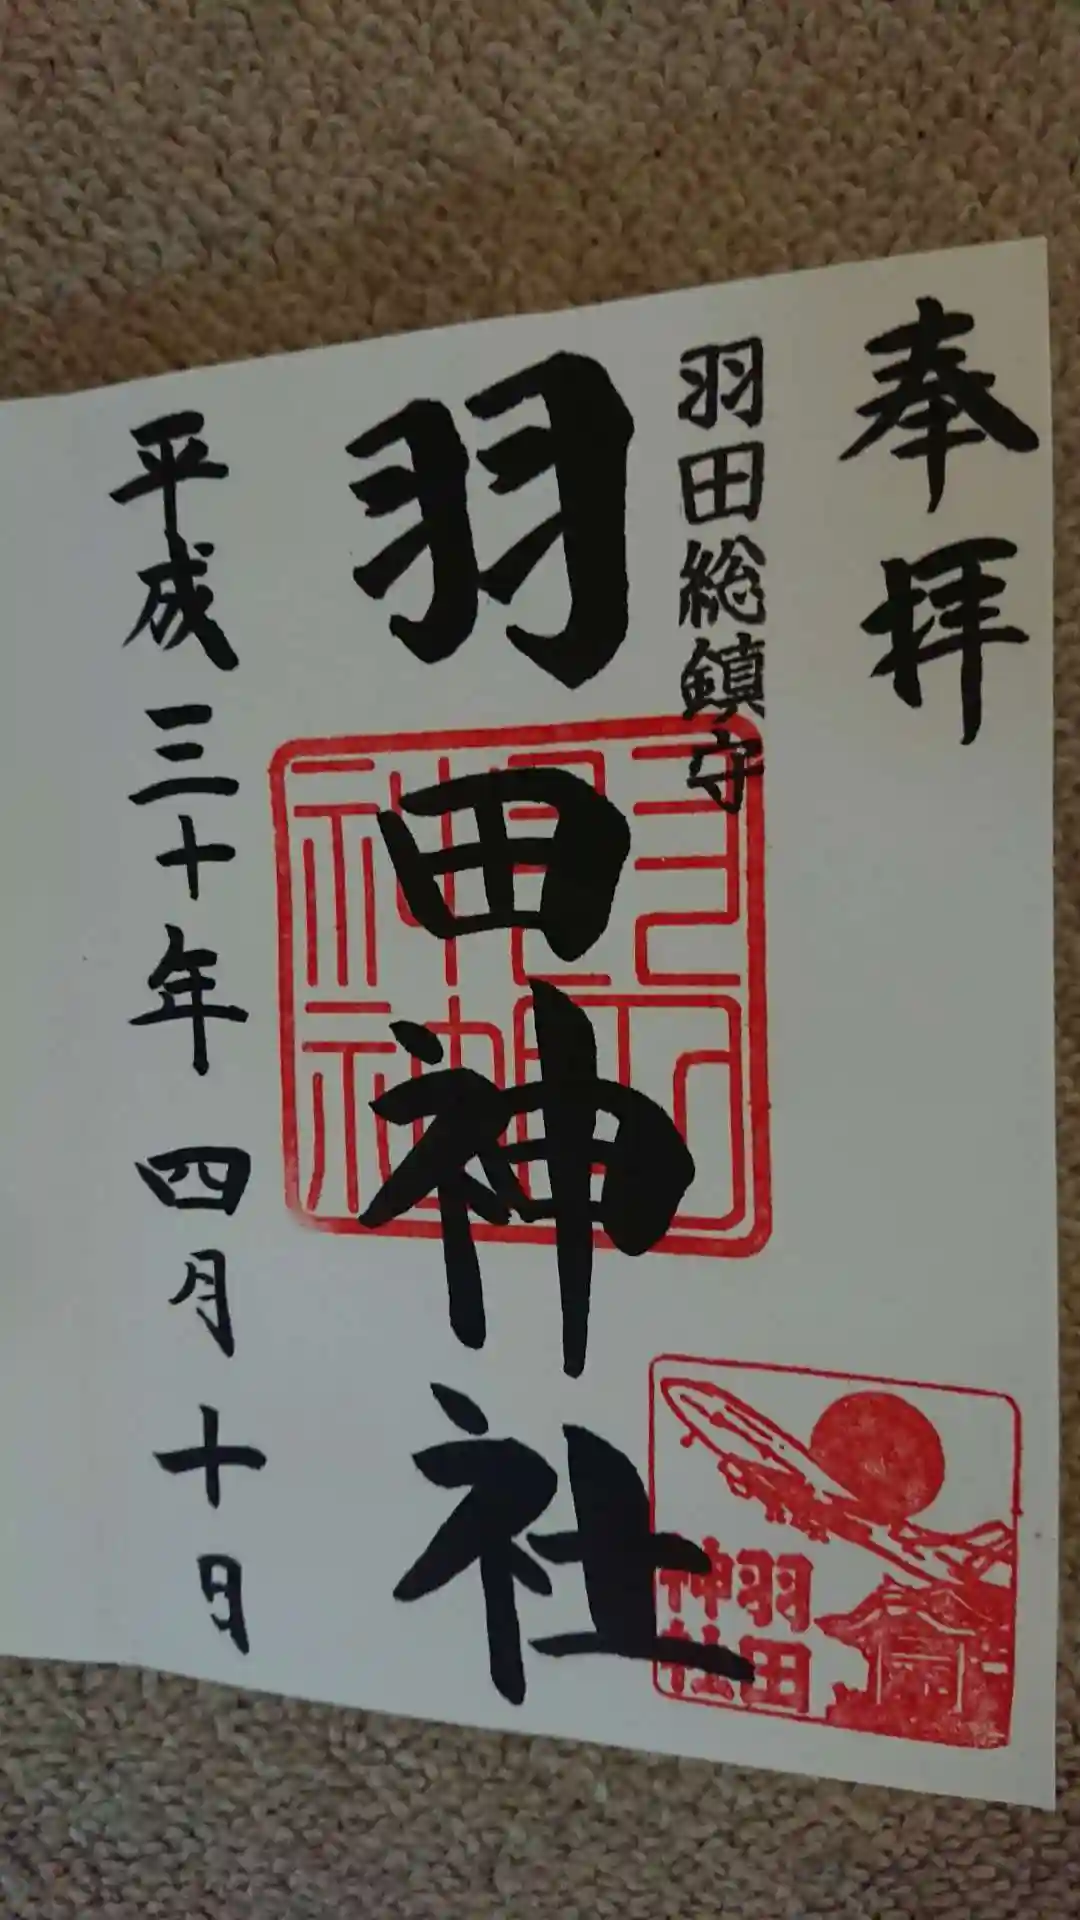 奉拝
羽田総鎮守
羽田神社
平成三十年四月十日
羽田
神社